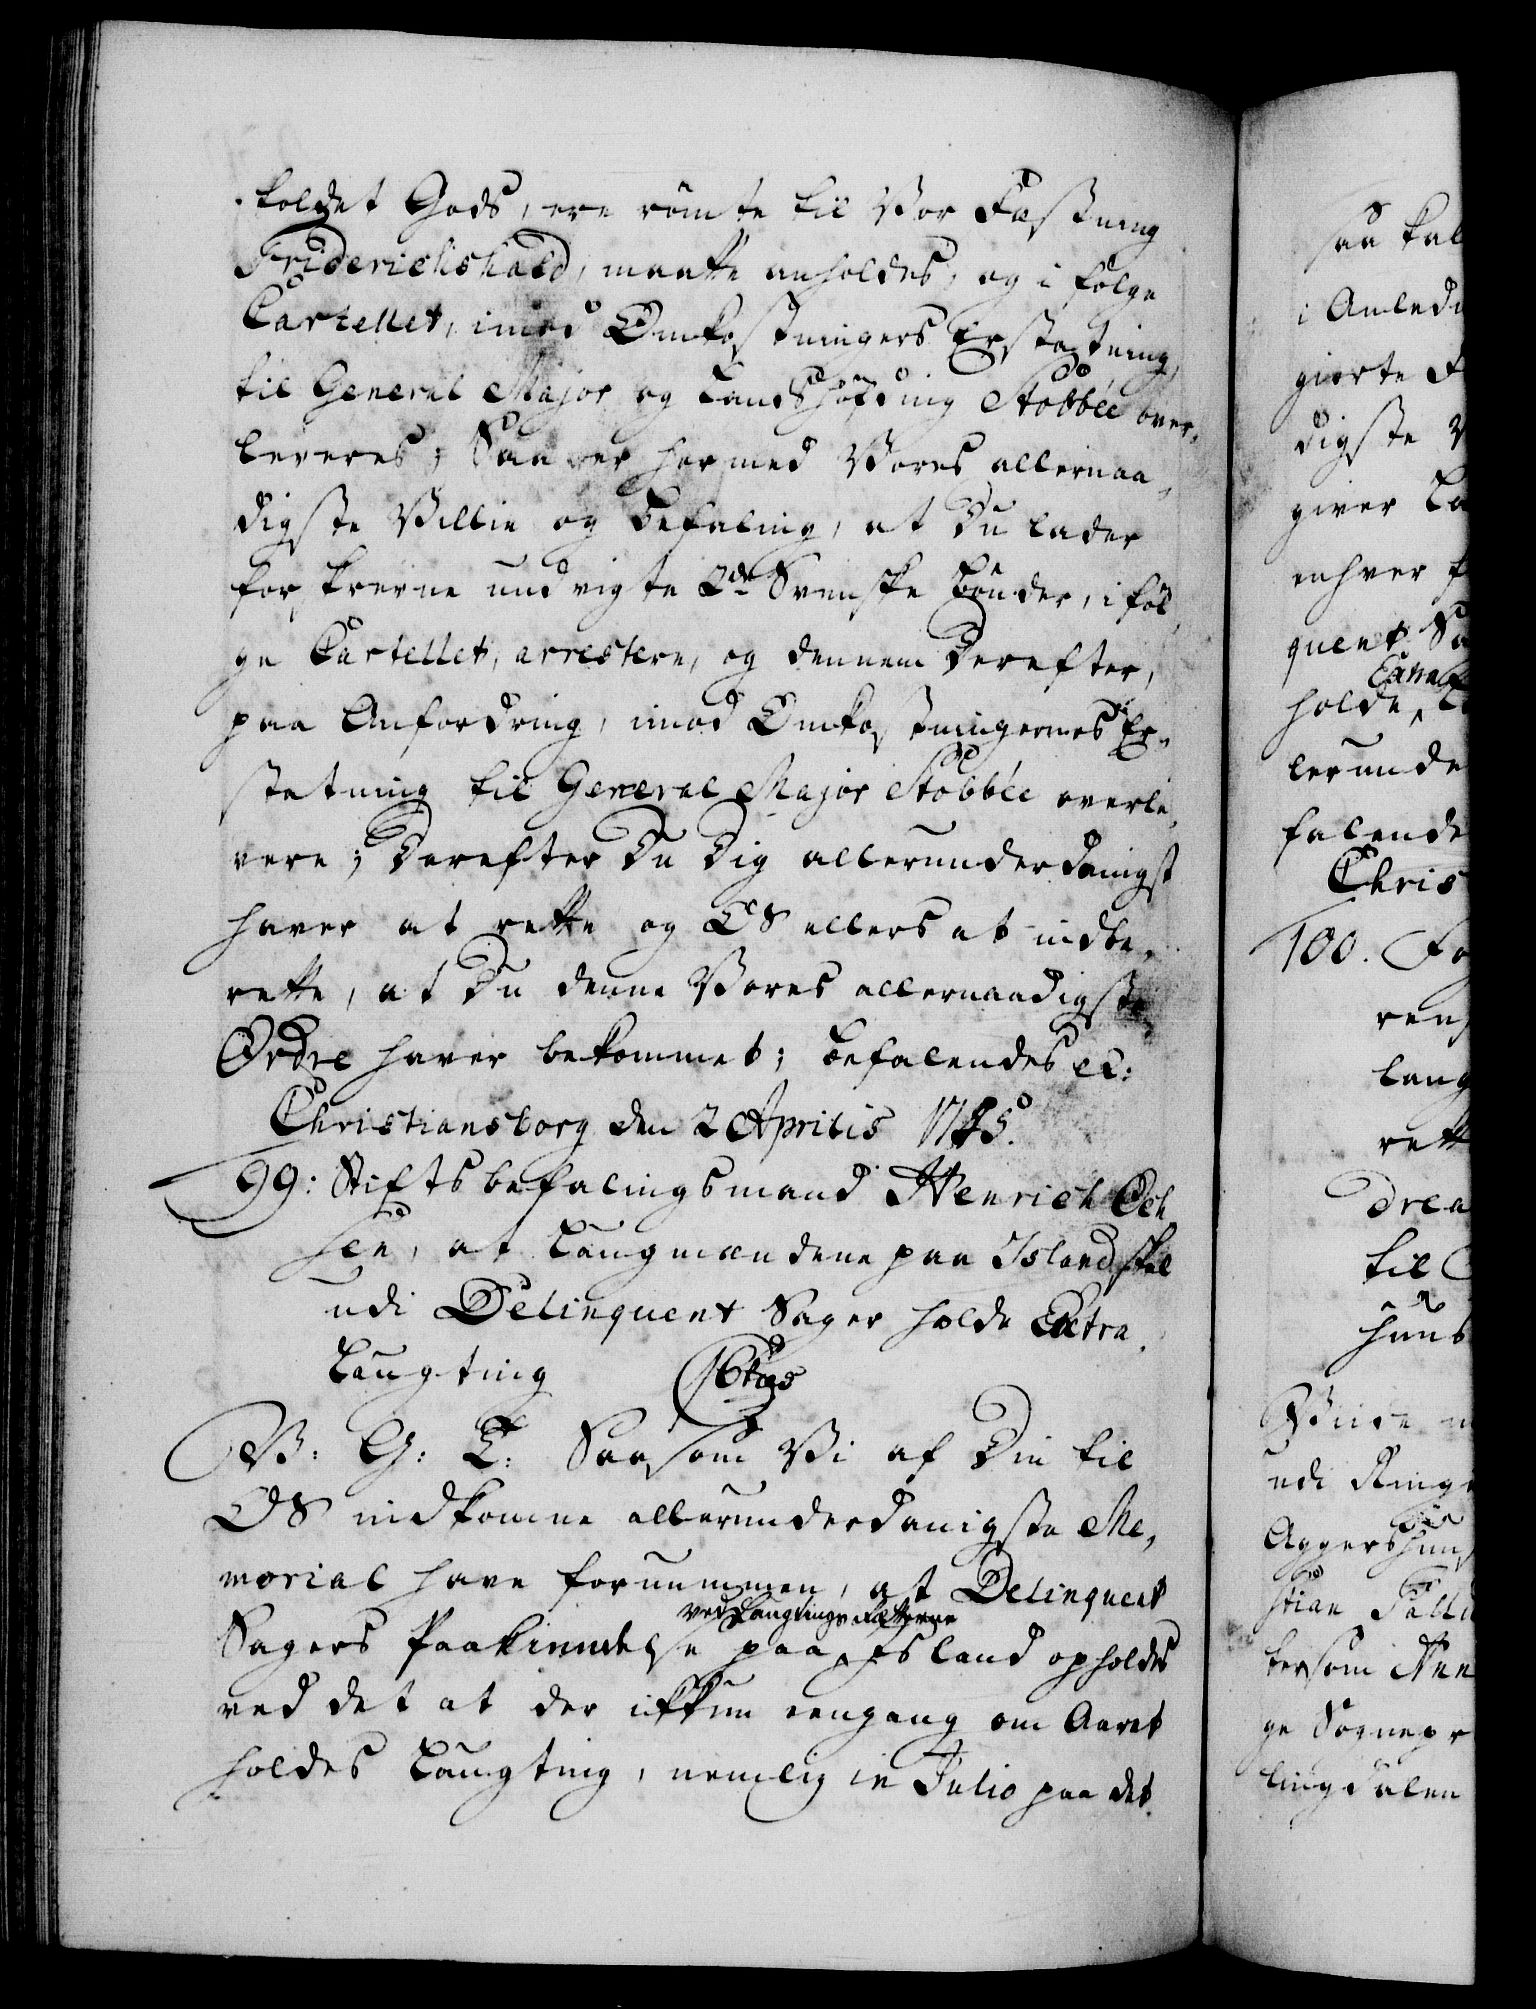 koldet Gods, ere römte til Vor Fæstning
Friderichshald, maatte anholdes, og i følge
Cartellet, imod Omkostningers Erstatning,
til General Major og Landshöfding Stobbée over-
leveres; Saa er hermed Vores allernaa-
digste Villie og Befaling, at Du lader
forskrevne undvigte 2de Svenske Bönder, i föl-
ge Cartellet, arrestere, og dennem Derefter,
paa Anfordring, imod Omkostningernes Er-
stetning til General Major Stobbée overle-
vere; Derefter Du Dig allerunderdanigst
haver at rette og OS ellers at indbe-
rette, at Du denne Vores allernaadigste
Ordre haver bekommet; Befalendes etc:
Christiansborg den 2 Aprilis 1745.
99: Stiftsbefalingsmand Henrich Och
sen, at Laugmændene paa Island skal
udi Delinquent Sager holde Extra
Laugting
V: G: T: Saasom Vi af Din til
OS indkomne allerunderdanigste Me-
morial have fornummen, at Delinquent
ved Laugtings Retterne
Sagers Paakiendelse paa Island opholdes
ved det at der ikkun eengang om Aaret
holdes Laugting, nemlig in Julio paa det
saa kal
i Anledn
gierte F
digste V
giver La
enhver f
quent Sa
Extra
holde, L
lerunde
falende
Chris
100. Fo
ren
lang
rett
Drea
til
huus
udi Ring
Aggershuus
stian Fall
kersom Hen
ge Sognepr
lingdalen